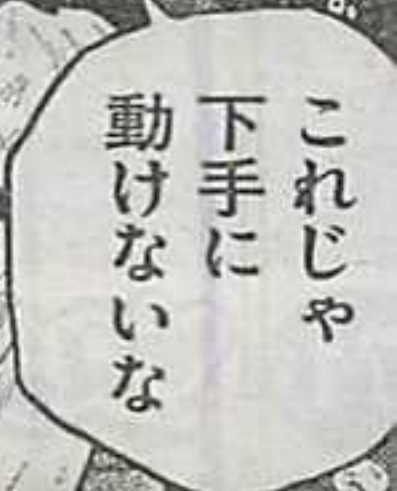 これじゃ
下手に
動けないな